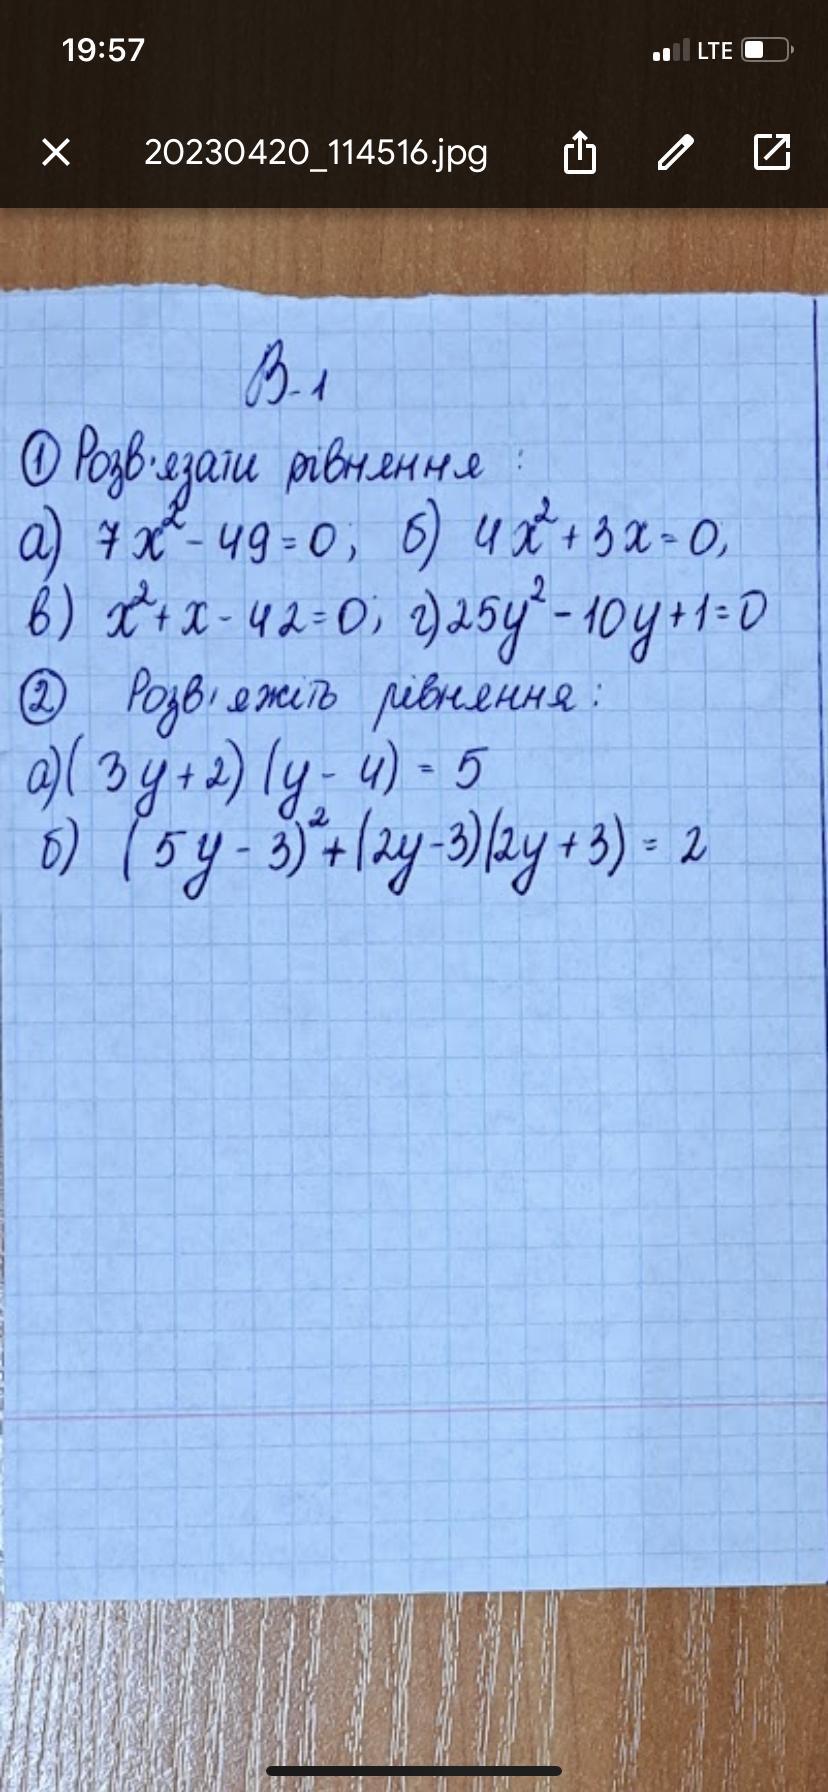 19:57
LTE
20230420_114516.jpg
В-1
① Розв'язати рівняння :
а) 7x² - 49 = 0; б) 4x² + 3x = 0,
в) x² + x - 42 = 0; г) 25y² - 10y + 1 = 0
② Розв'яжіть рівняння :
а) (3y + 2) (y - 4) = 5
б) (5y - 3)² + (2y - 3)(2y + 3) = 2